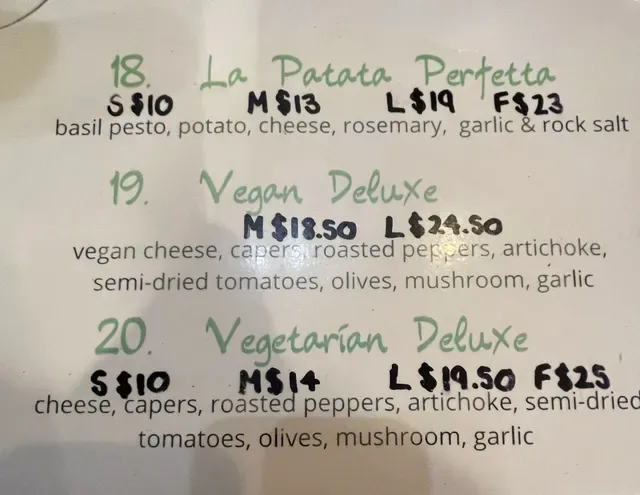 18. La Patata Perfetta
S $10 M $13 L $19 F $23
basil pesto, potato, cheese, rosemary, garlic & rock salt
19. Vegan Deluxe
M $18.50 L $24.50
vegan cheese, capers, roasted peppers, artichoke,
semi-dried tomatoes, olives, mushroom, garlic
20. Vegetarian Deluxe
S $10 M $14 L $19.50 F $25
cheese, capers, roasted peppers, artichoke, semi-dried
tomatoes, olives, mushroom, garlic